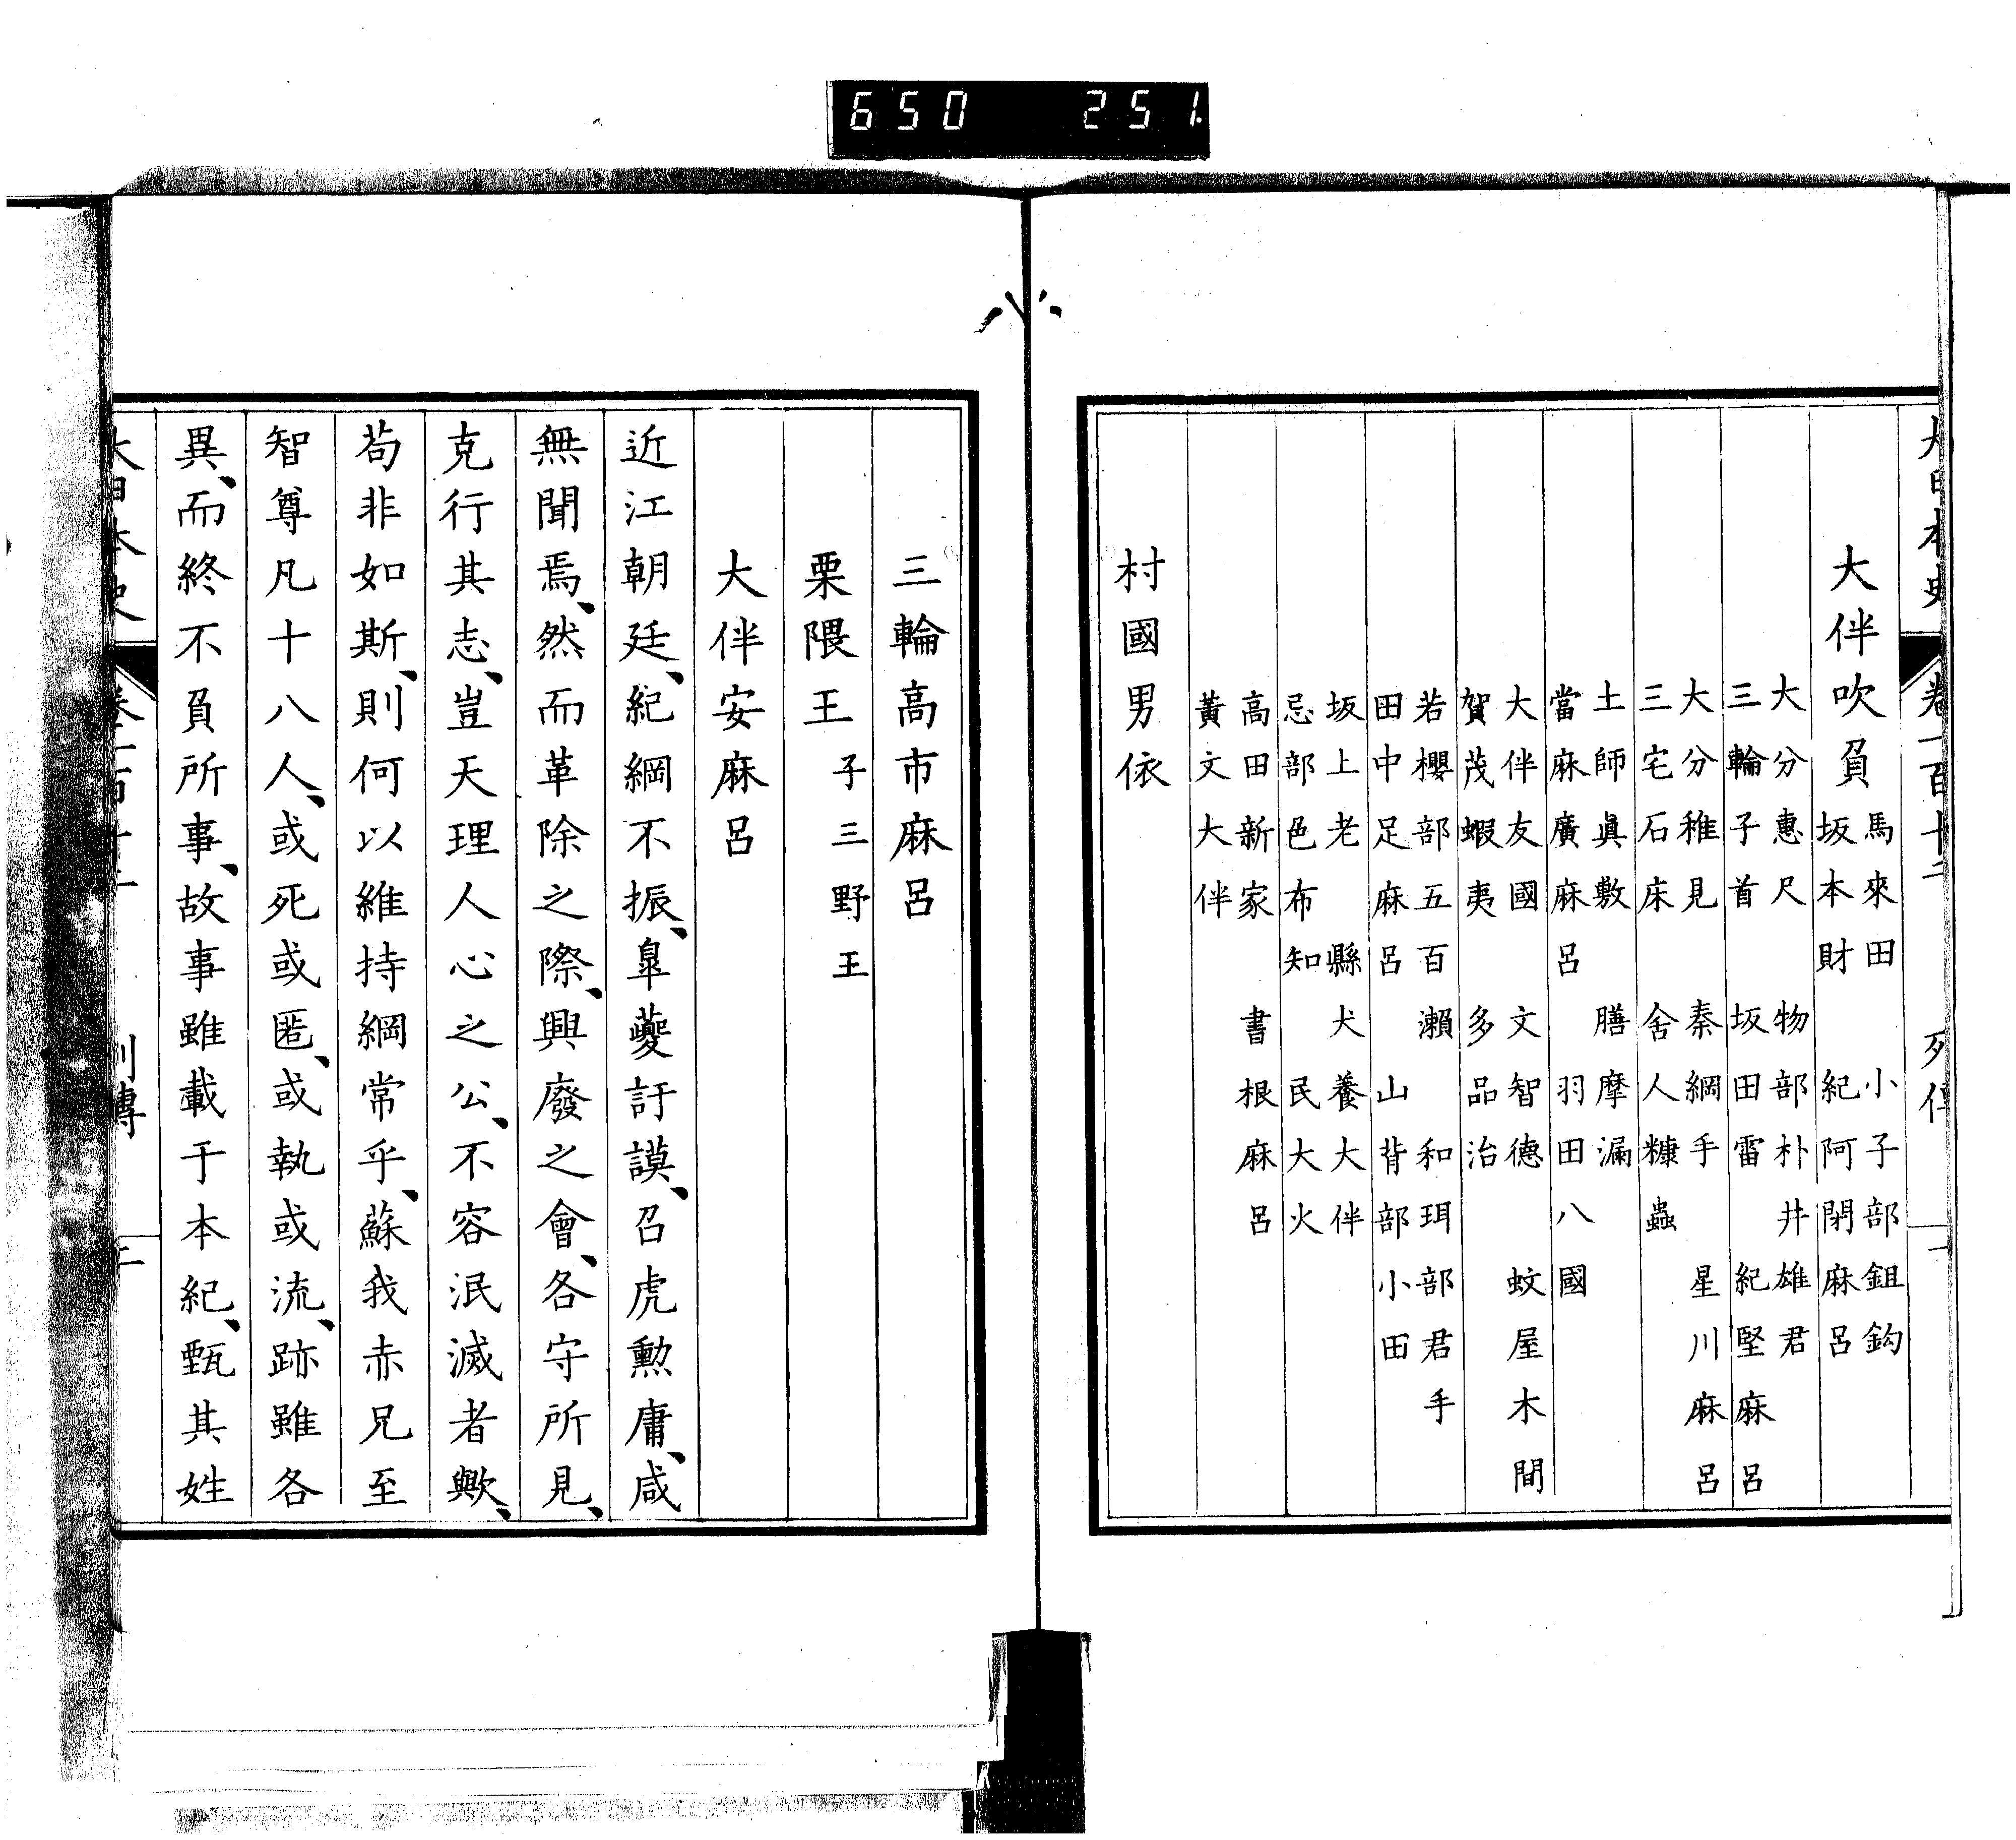 650 251
大日本史 卷一百十二 列傳 二
大伴吹負
馬來田 小子部鉏鈎
坂本財 紀阿閉麻呂
大分惠尺 物部朴井雄君
三輪子首 坂田雷 紀堅麻呂
大分稚見 秦綱手 星川麻呂
三宅石床 舍人糠蟲
土師眞敷 膳摩漏
當麻廣麻呂 羽田八國
大伴友國 文智德 蚊屋木間
賀茂蝦夷 多品治
若櫻部五百瀨 和珥部君手
田中足麻呂 山背部小田
坂上老 縣犬養大伴
忌部色布知 民大火
高田新家 書根麻呂
黃文大伴
村國男依
三輪高市麻呂
栗隈王 子三野王
大伴安麻呂
近江朝廷、紀綱不振、皐夔訏謨、召虎勲庸、咸
無聞焉、然而革除之際、興廢之會、各守所見、
克行其志、豈天理人心之公、不容泯滅者歟、
苟非如斯、則何以維持綱常乎、蘇我赤兄至
智尊凡十八人、或死或匿、或執或流、跡雖各
異、而終不負所事、故事雖載于本紀、甄其姓
大日本史 卷一百十二 列傳